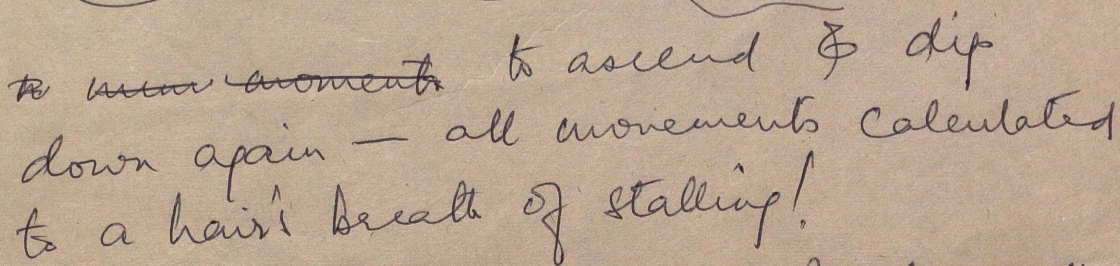 to ascend & dip
down again — all movements calculated
to a hair's breath of stalling!